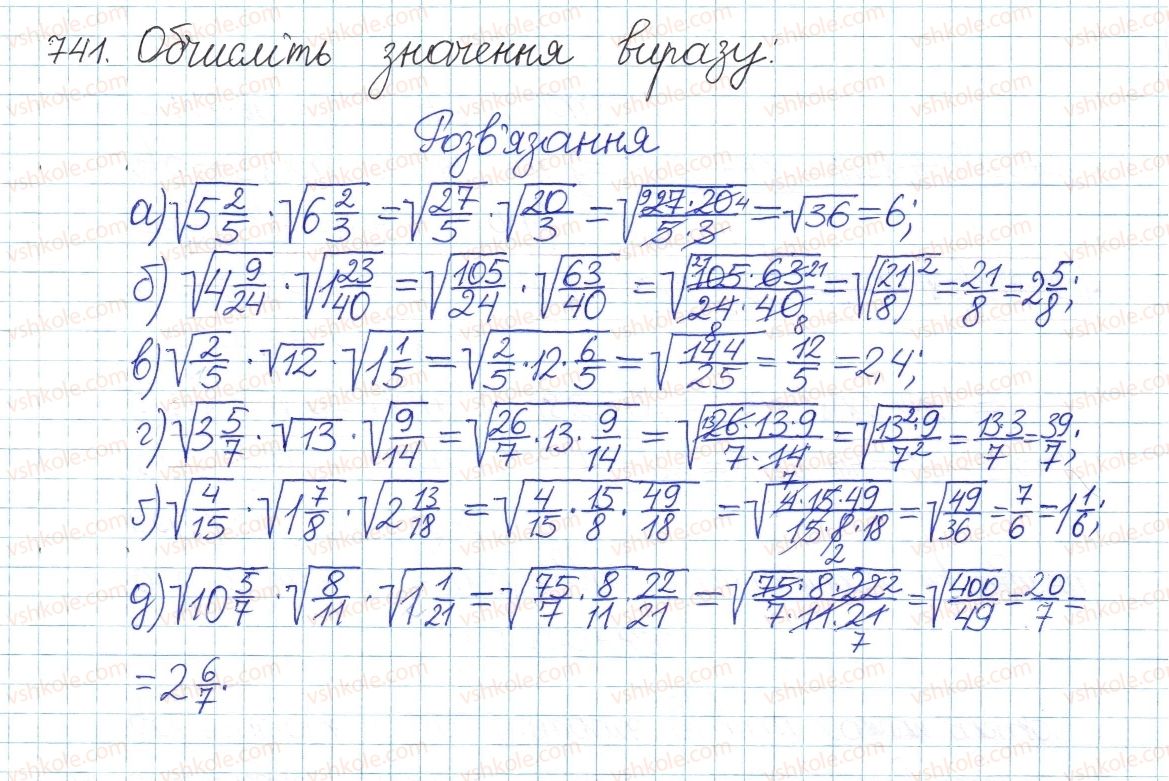 741. Обчисліть значення виразу:
Розв'язання
а) √(5 2/5) · √(6 2/3) = √(27/5) · √(20/3) = √((27·20)/(5·3)) = √36 = 6;
б) √(4 9/24) · √(1 23/40) = √(105/24) · √(63/40) = √((105·63)/(24·40)) = √((21/8)²) = 21/8 = 2 5/8;
в) √(2/5) · √12 · √(1 1/5) = √(2/5 · 12 · 6/5) = √(144/25) = 12/5 = 2,4;
г) √(3 5/7) · √13 · √(9/14) = √(26/7 · 13 · 9/14) = √((26·13·9)/(7·14)) = √((13²·9)/7²) = (13·3)/7 = 39/7;
б) √(4/15) · √(1 7/8) · √(2 13/18) = √(4/15 · 15/8 · 49/18) = √((4·15·49)/(15·8·18)) = √(49/36) = 7/6 = 1 1/6;
д) √(10 5/7) · √(8/11) · √(1 1/21) = √(75/7 · 8/11 · 22/21) = √((75·8·22)/(7·11·21)) = √(400/49) = 20/7 =
= 2 6/7.